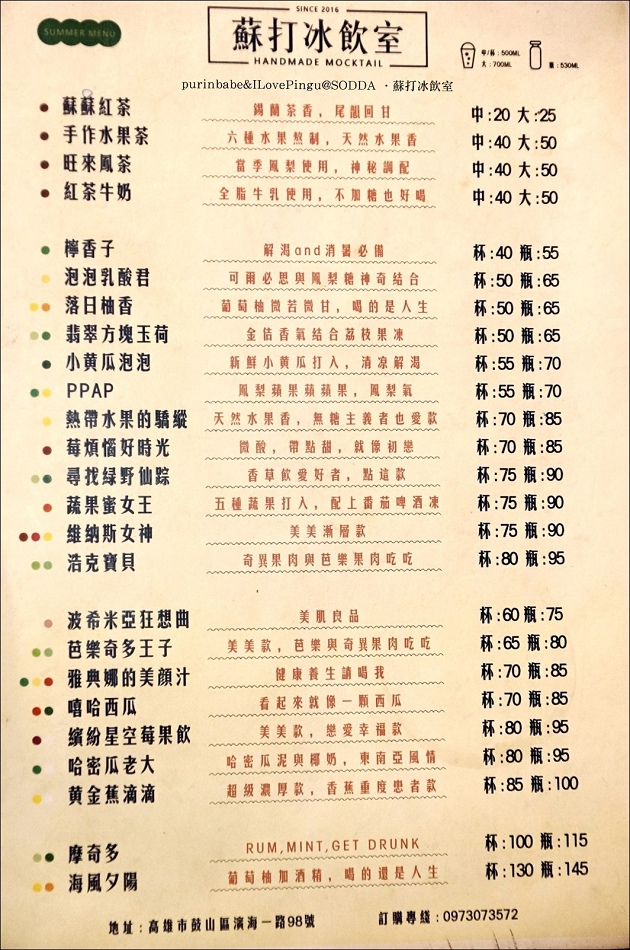 SUMMER MENU
SINCE 2016
蘇打冰飲室
HANDMADE MOCKTAIL
中/杯:500ML
大:700ML
瓶:530ML
purinbabe&ILovePingu@SODDA ・蘇打冰飲室
蘇蘇紅茶 錫蘭茶香,尾韻回甘 中:20 大:25
手作水果茶 六種水果熬制,天然水果香 中:40 大:50
旺來鳳茶 當季鳳梨使用,神秘調配 中:40 大:50
紅茶牛奶 全脂牛乳使用,不加糖也好喝 中:40 大:50
檸香子 解渴and消暑必備 杯:40 瓶:55
泡泡乳酸君 可爾必思與鳳梨糖神奇結合 杯:50 瓶:65
落日柚香 葡萄柚微苦微甘,喝的是人生 杯:50 瓶:65
翡翠方塊玉荷 金桔香氣結合荔枝果凍 杯:50 瓶:65
小黄瓜泡泡 新鮮小黄瓜打入,清凉解渴 杯:55 瓶:70
PPAP 鳳梨蘋果蘋蘋果,鳳梨氣 杯:55 瓶:70
熱帶水果的驕縱 天然水果香,無糖主義者也愛款 杯:70 瓶:85
莓煩惱好時光 微酸,帶點甜,就像初戀 杯:70 瓶:85
尋找绿野仙踪 香草飲愛好者,點這款 杯:75 瓶:90
蔬果蜜女王 五種蔬果打入,配上番茄啤酒凍 杯:75 瓶:90
維納斯女神 美美漸層款 杯:75 瓶:90
浩克寶貝 奇異果肉與芭樂果肉吃吃 杯:80 瓶:95
波希米亞狂想曲 美肌良品 杯:60 瓶:75
芭樂奇多王子 美美款,芭樂與奇異果肉吃吃 杯:65 瓶:80
雅典娜的美顏汁 健康養生請喝我 杯:70 瓶:85
嘻哈西瓜 看起來就像一顆西瓜 杯:70 瓶:85
繽紛星空莓果飲 美美款,戀愛幸福款 杯:80 瓶:95
哈密瓜老大 哈密瓜泥與椰奶,東南亞風情 杯:80 瓶:95
黄金蕉滴滴 超級濃厚款,香蕉重度患者款 杯:85 瓶:100
摩奇多 RUM,MINT,GET DRUNK 杯:100 瓶:115
海風夕陽 葡萄柚加酒精,喝的還是人生 杯:130 瓶:145
地址:高雄市鼓山區濱海一路98號 訂購專綫:0973073572